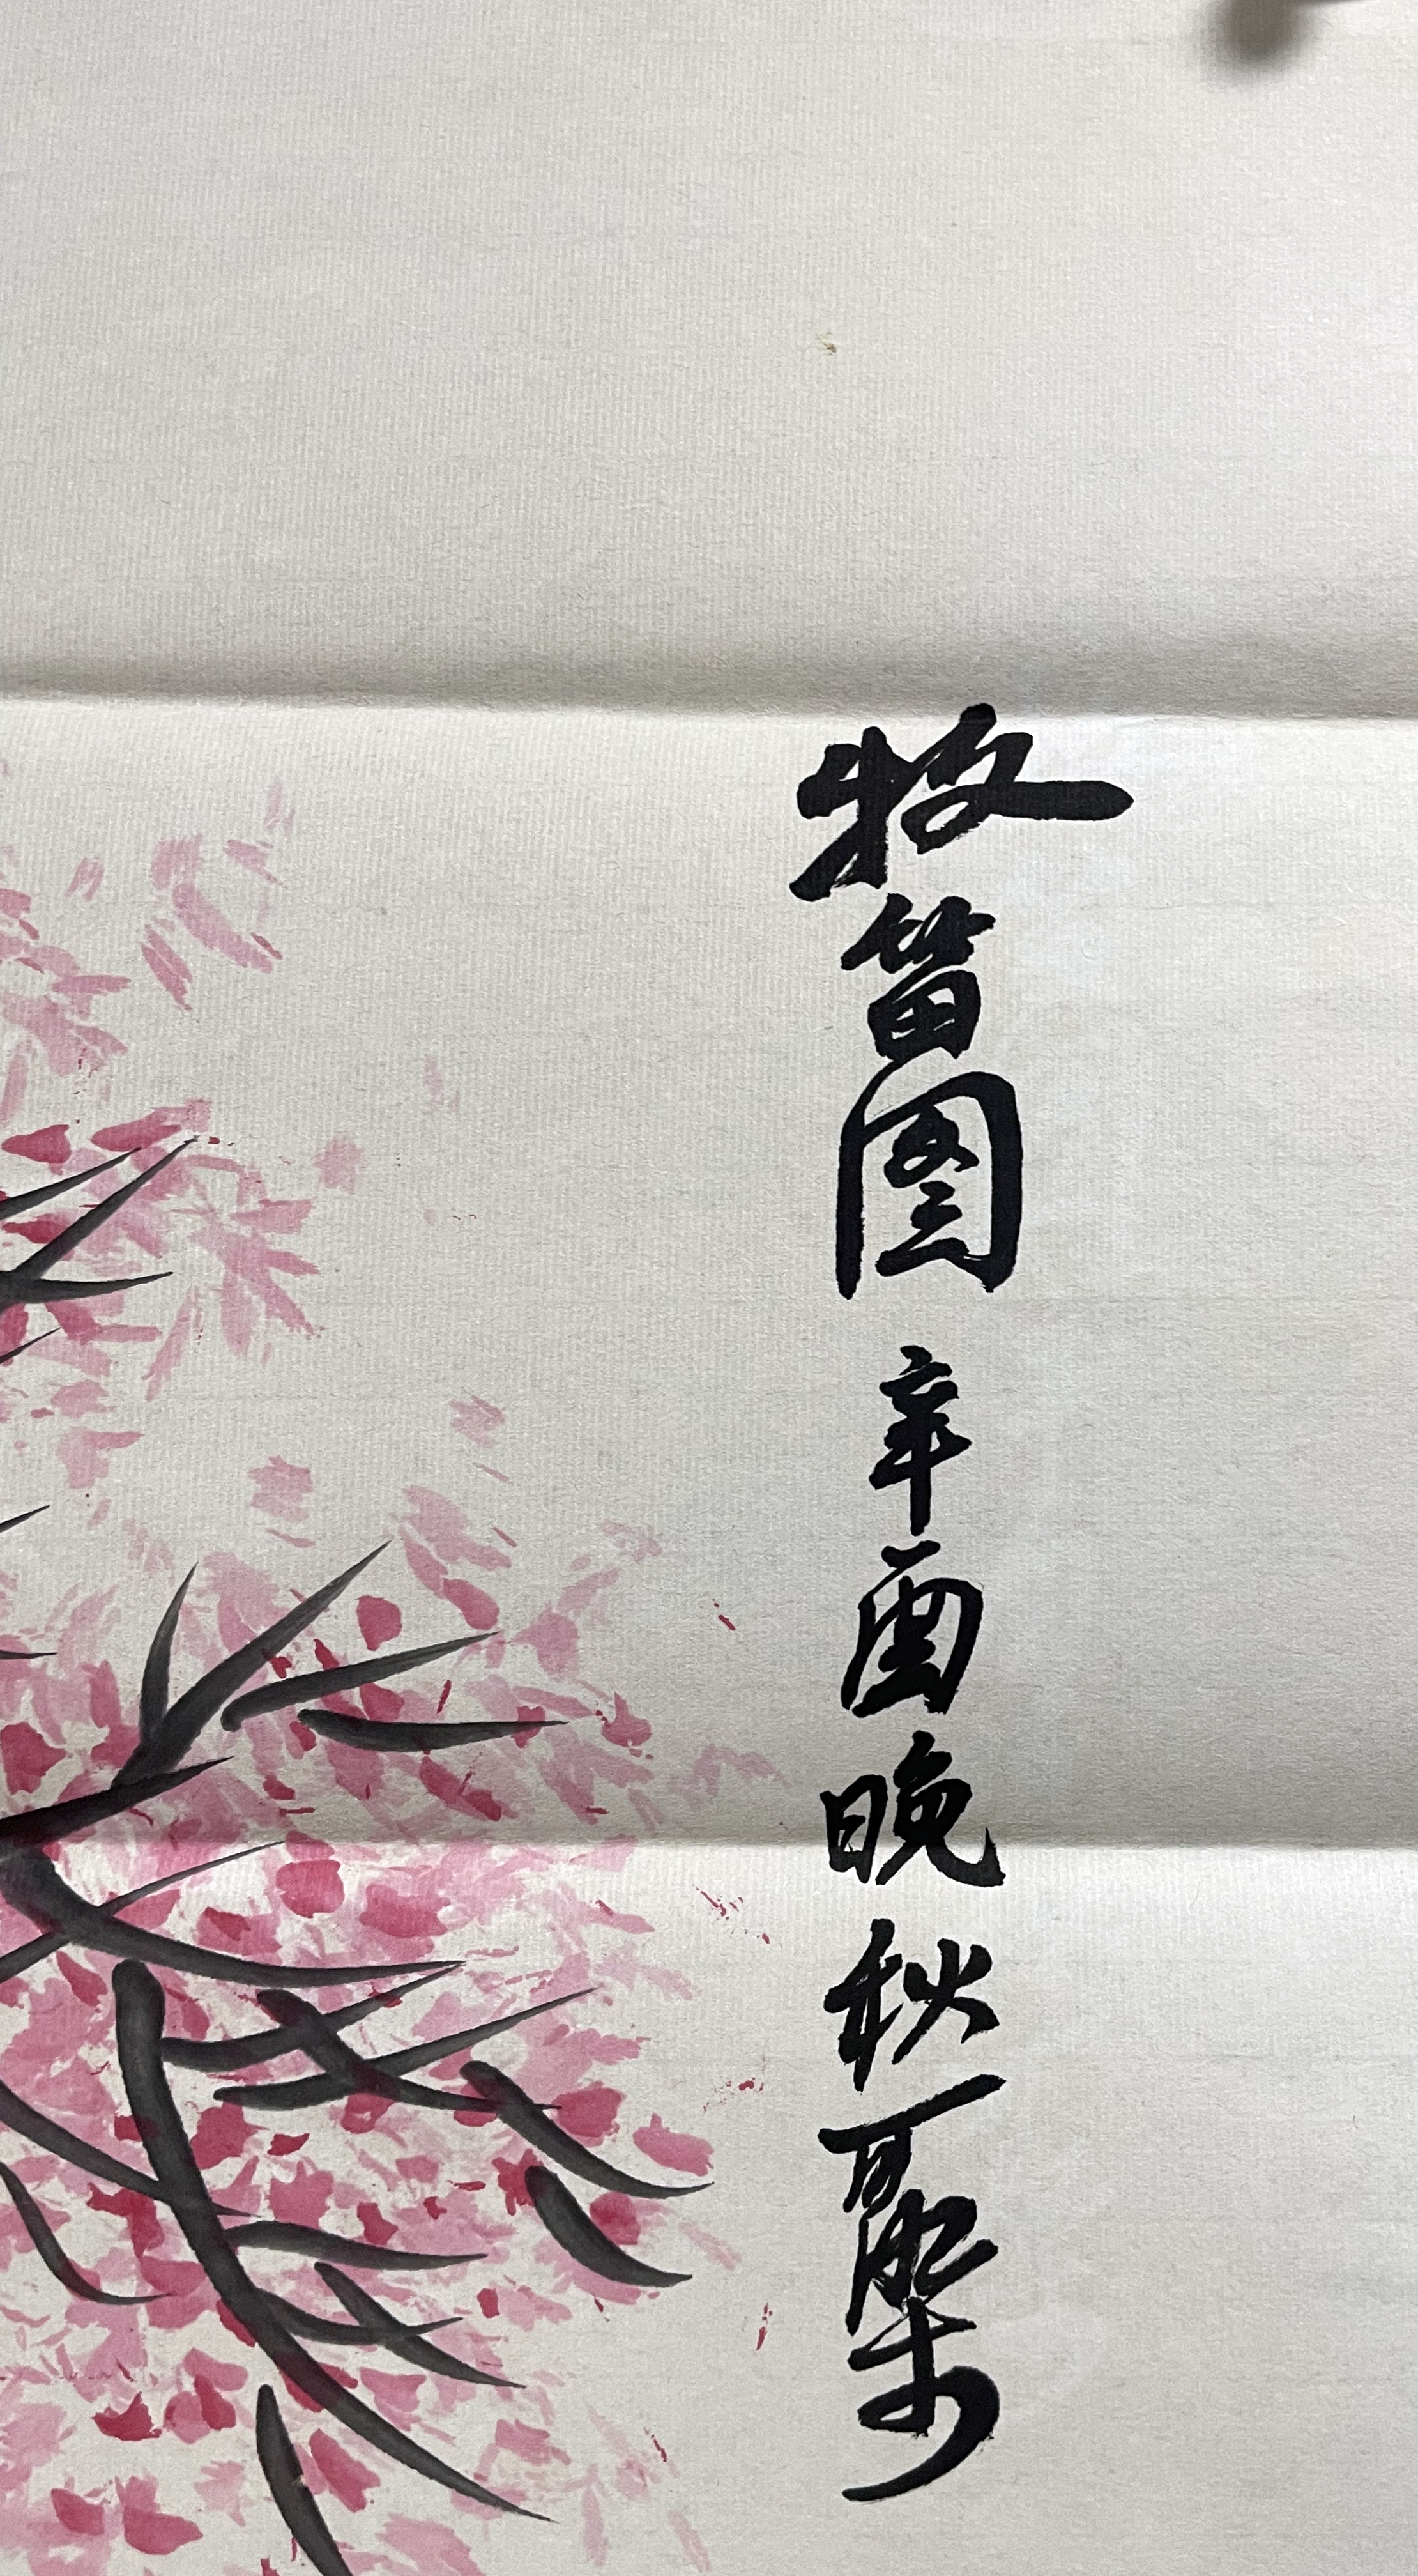 牧笛图 辛酉晚秋 可染